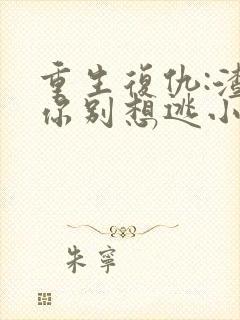 重生復仇:渣
你别想逃小
朱寧